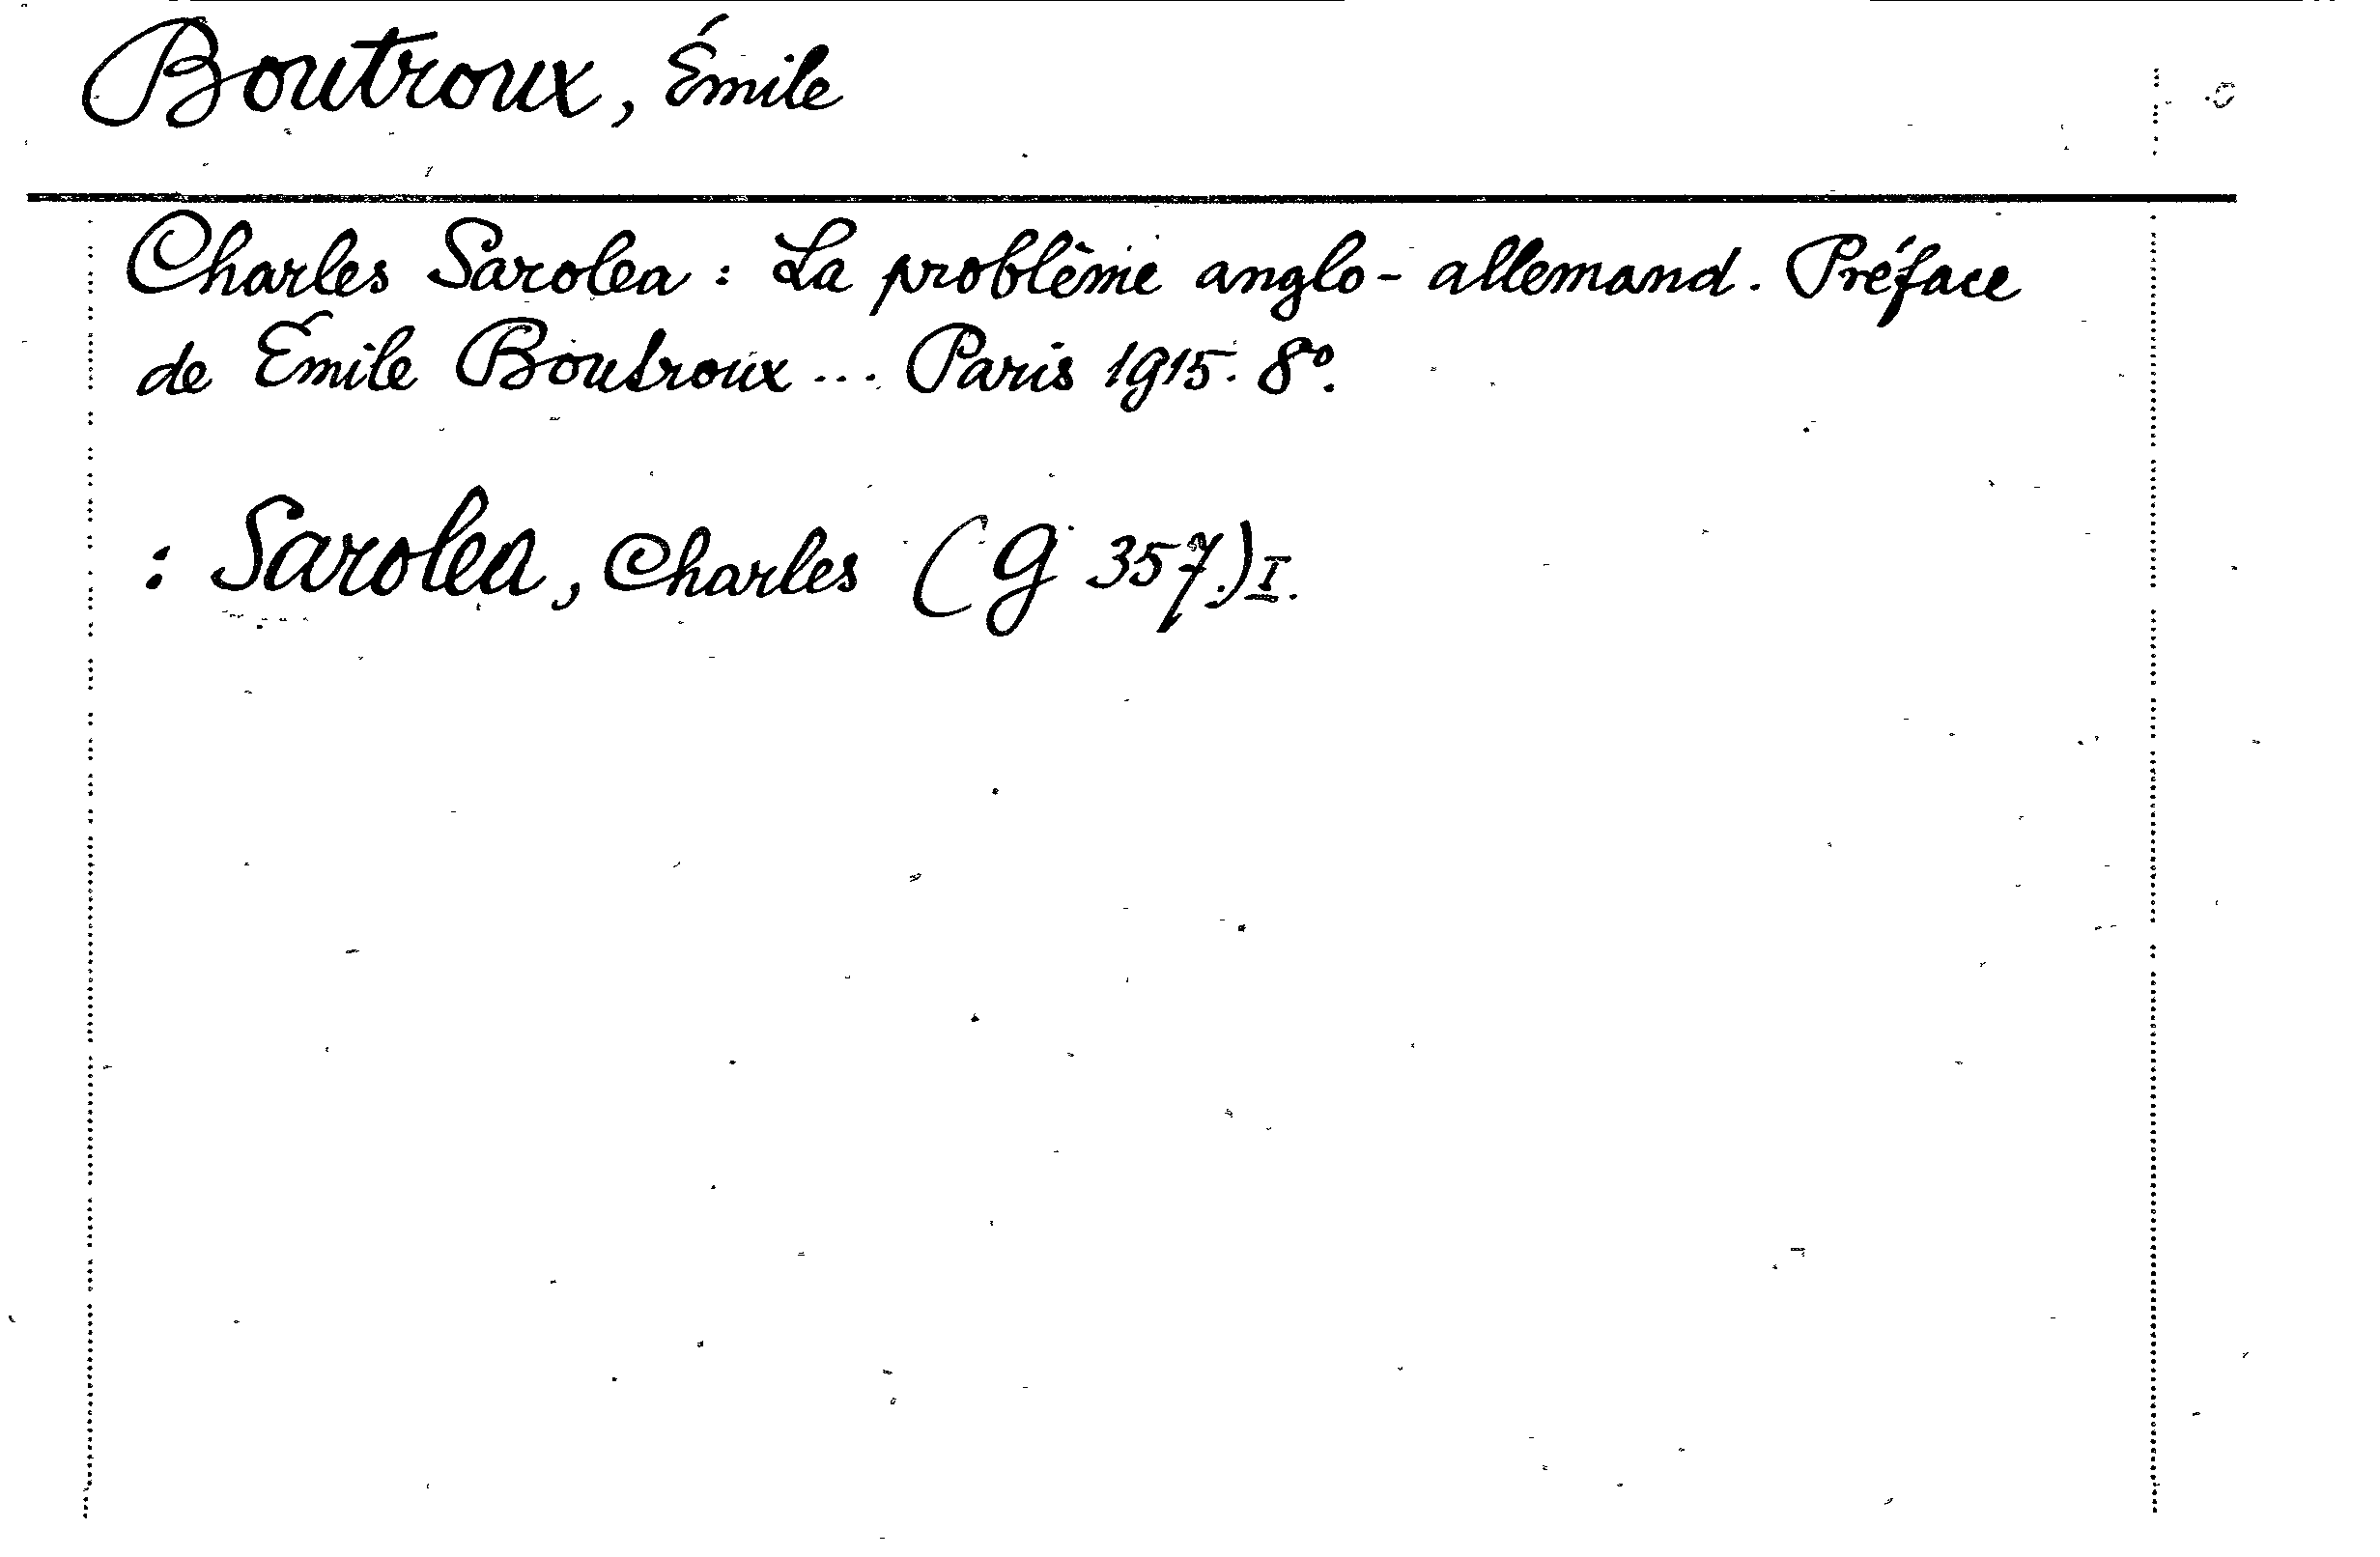 Boutroux, Émile
Charles Sarolea : La problème anglo-allemand. Préface
de Émile Boutroux ... Paris 1915. 8º.
: Sarolea, Charles (G 357.) I.